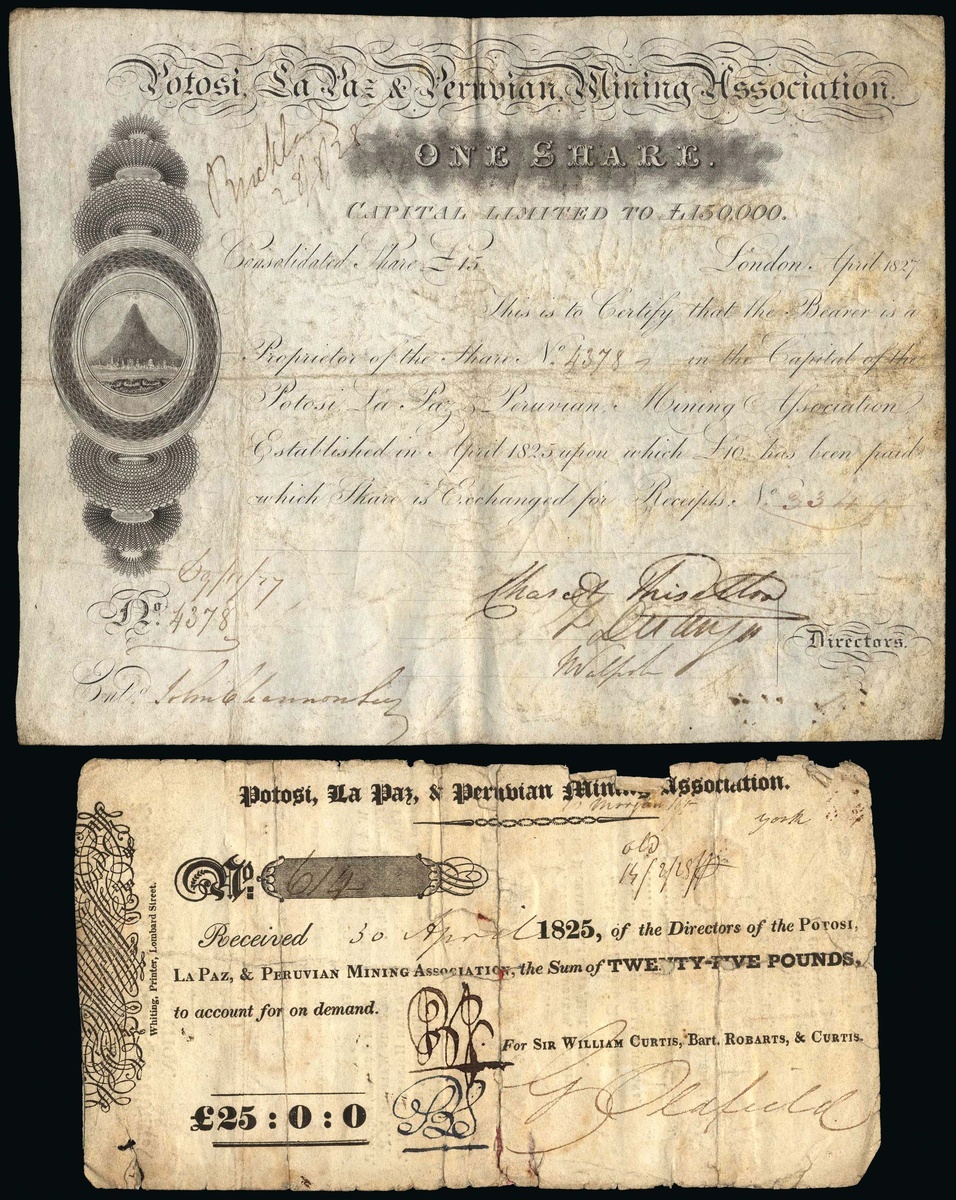 Potosi, La Paz & Peruvian, Mining Association.
ONE SHARE.
28/8/28
CAPITAL LIMITED TO £150,000.
Consolidated Share £15 London April 1827
This is to Certify that the Bearer is a
Proprietor of the Share No. 4378 in the Capital of the
Potosi, La Paz & Peruvian, Mining Association
Established in April 1825 upon which £10 has been paid
which Share is Exchanged for Receipts No. 334
No. 4378
Directors.
Entd.
Potosi, La Paz, & Peruvian Mining Association.
York
old
No. 614
Received 30 April 1825, of the Directors of the POTOSI,
LA PAZ, & PERUVIAN MINING ASSOCIATION, the Sum of TWENTY-FIVE POUNDS,
to account for on demand.
For SIR WILLIAM CURTIS, Bart. ROBARTS, & CURTIS.
G Oldfield
£25 : 0 : 0
Whiting, Printer, Lombard Street.